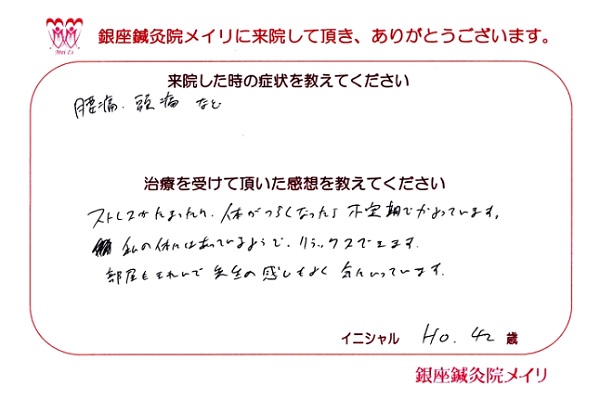 Mei Li
銀座鍼灸院メイリに来院して頂き、ありがとうございます。
来院した時の症状を教えてください
腰痛、頭痛 など
治療を受けて頂いた感想を教えてください
ストレスがたまったり、体がつらくなったら不定期でかよっています。
私の体にはあっているようで、リラックスできます。
部屋もきれいで先生の感じもよく気に入っています。
イニシャル H.O. 42 歳
銀座鍼灸院メイリ